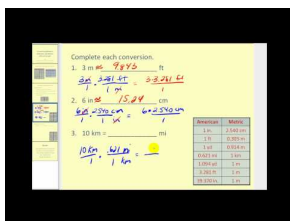 Complete each conversion.
1. 3 m ≈ 9.843 ft
3m/1 · 3.281 ft/1 m = 3·3.281 ft/1
2. 6 in ≈ 15.24 cm
6 in/1 · 2.540 cm/1 in = 6·2.540 cm/1
3. 10 km = mi
10 km/1 · .621 mi/1 km =
American Metric
1 in. 2.540 cm
1 ft 0.305 m
1 yd 0.914 m
0.621 mi 1 km
1.094 yd 1 m
3.281 ft 1 m
39.370 in. 1 m